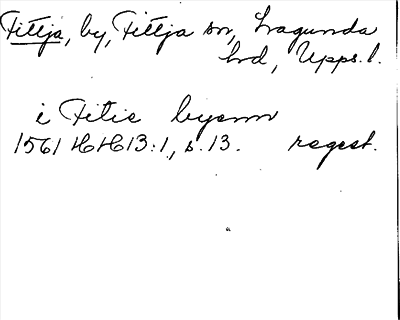 Fittja, by, Fittja sn, Lagunda
hd, Upps. l.
i Fitie byenn
1561 HH 13:1, s. 13. regest.